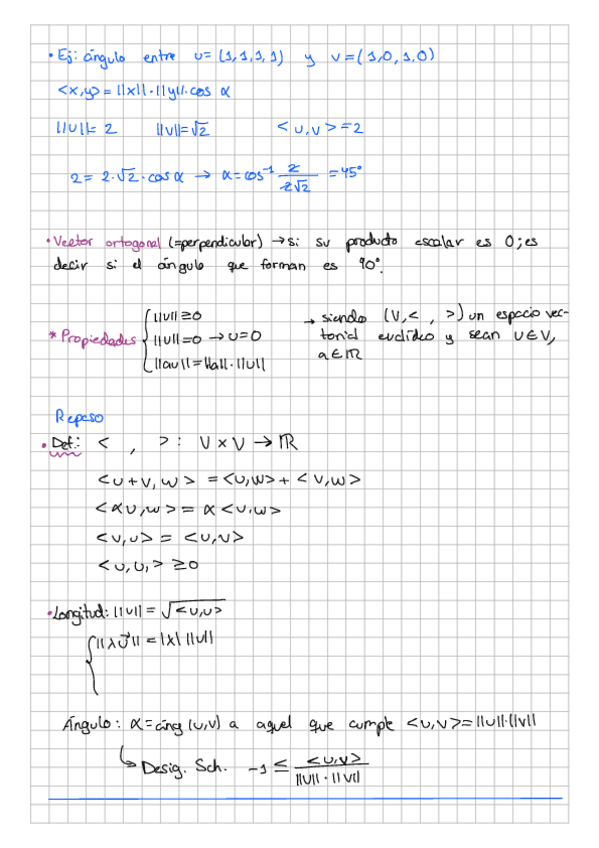 • Ej: ángulo entre u=(1,1,1,1) y v=(1,0,1,0)
<x,y>=||x||·||y||·cos α
||u||=2 ||v||=√2 <u,v>=2
2=2·√2·cos α → α=cos⁻¹ 2/2√2 =45°
• Vector ortogonal (=perpendicular) → si su producto escalar es 0; es
decir si el ángulo que forman es 90°.
* Propiedades { ||u||≥0
||u||=0 → u=0
||au||=||a||·||u||
→ siendo (V,< , >) un espacio vec-
torial euclídeo y sean u∈V,
a∈ℝ
Repaso
• Def.: < , >: V×V → ℝ
<u+v,w> =<u,w>+<v,w>
<αu,w>=α<u,w>
<v,u>=<u,v>
<u,u,>≥0
• Longitud: ||u||=√<u,u>
{ ||λu⃗||=|λ| ||u||
Ángulo: α=áng(u,v) a aquel que cumple <u,v>=||u||·||v||
↳ Desig. Sch. -1≤ <u,v>/||u||·||v||